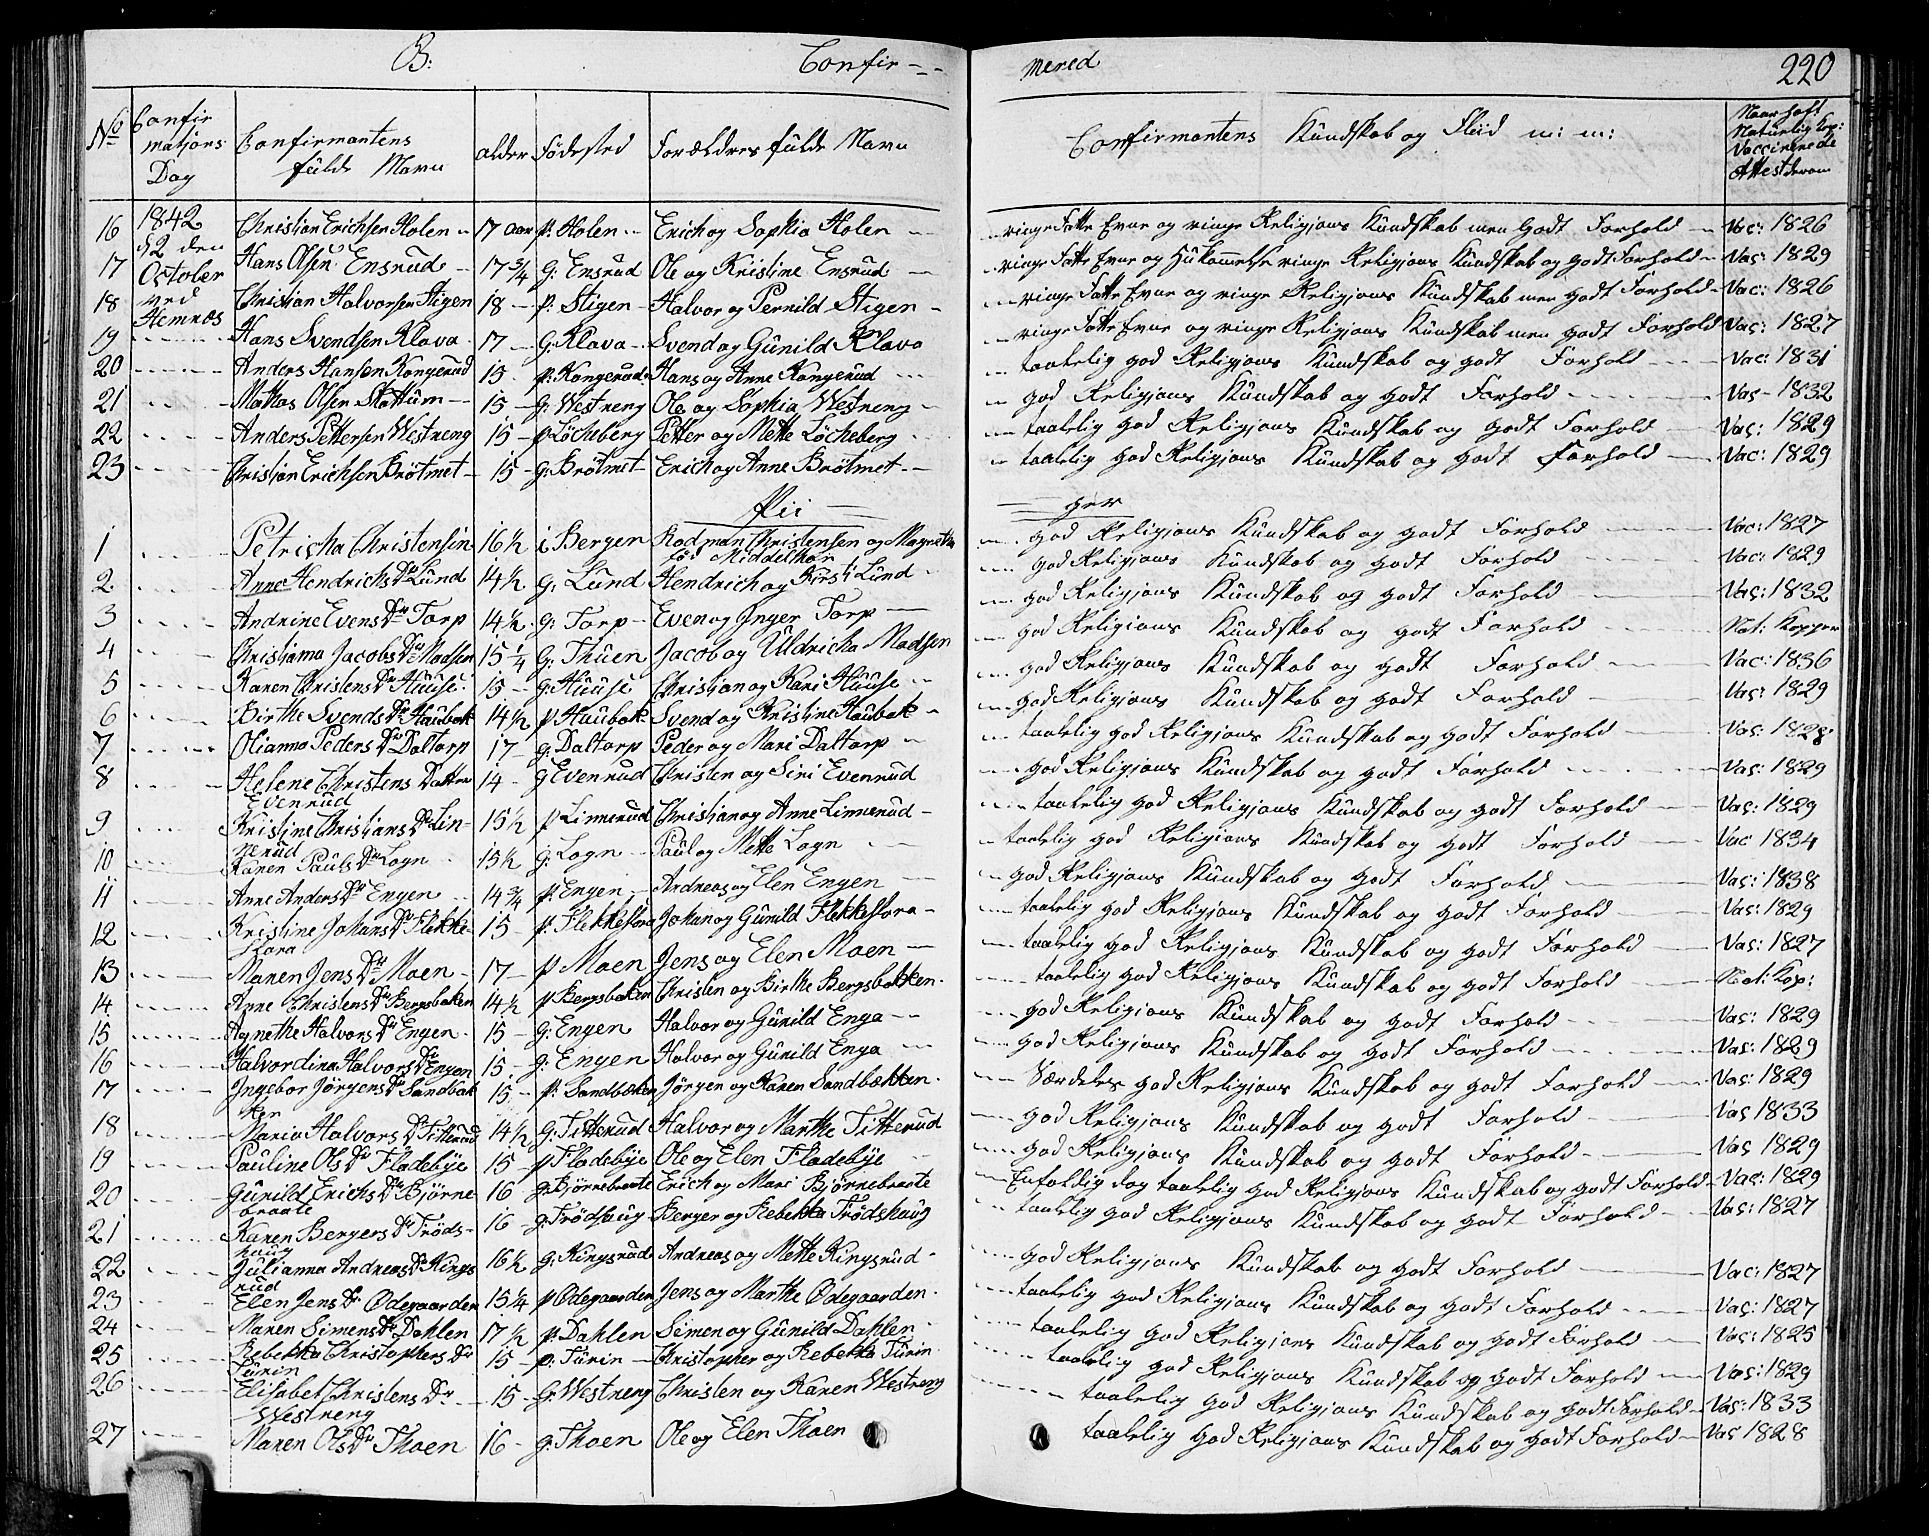 B: Confir- mered 220
No Confirmatjons Dag Confirmantens fulde Navn alder Födested Forældres fulde Navn Confirmantens Kundskab og Flid m: m: Naar haft Naturlig Kop: Vaccinerede Attest derom
16 1842 Christian Erichsen Holen 17 aar p. Holen Erich og Sophia Holen ringe Fatte Evne og ringe Religjons Kundskab men Godt Forhold Vac: 1826
17 d 2 den October Hans Olsen Ensrud 17 3/4 G: Ensrud Ole og Kristine Ensrud ringe Fatte Evne og Hukommelse ringe Religjons Kundskab og godt Forhold Vac: 1829
18 ved Hemnæs Christian Halvorsen Stigen 18 p: Stigen Halvor og Pernild Stigen ringe Fatte Evne og ringe Religjons Kundskab men godt Forhold Vac: 1826
19 Hans Svendsen Klava 17 G. Klava Svend og Gunild Klava ringe Fatte Evne og ringe Religjons Kundskab men godt Forhold Vac: 1827
20 Anders Hansen Kongerud 15 p: Kongerud Hans og Anne Kongerud taalelig god Religjons Kundskab og godt Forhold Vac: 1831
21 Mathias Olsen Skattum 15 G: Westreng Ole og Sophia Westreng god Religjons Kundskab og godt Forhold Vac 1832
22 Anders Pettersen Westreng 15 p Löcheberg Petter og Mette Löcheberg taalelig god Religjons Kundskab og godt Forhold Vac: 1829
23 Christian Erichsen Brötmet 15 g: Brötmet Erich og Anne Brötmet taalelig god Religjons Kundskab og godt Forhold Vac: 1829
Pii ger
1 Petricha Christensin 16 1/2 i Bergen Kodman Christensen og Magretha Middelthon god Religjons Kundskab og godt Forhold Vac: 1827
2 Anne Hendrichs Dr Lund 14 1/2 g: Lund Hendrich og Kirsti Lund god Religjons Kundskab og godt Forhold Vac: 1829
3 Andrine Evens Dr Torp 14 1/2 g: Torp Even og Inger Torp god Religjons Kundskab og godt Forhold Vac: 1832
4 Christiama Jacobs Dr Madsen 15 1/4 G: Thuen Jacob og Uldricha Madsen god Religjons Kundskab og godt Forhold Nat: Kopper
5 Karen Christens Dr Huuse 15 g: Huuse Christjan og Kari Huuse god Religjons Kundskab og godt Forhold Vac: 1836
6 Birthe Svends Dr Haubak 14 1/2 p Haubak Svend og Kristine Haubak god Religjons Kundskab og godt Forhold Vac: 1829
7 Olianna Peders Dr Daltorp 17 g: Daltorp Peder og Mari Daltorp taalelig god Religjons Kundskab og godt Forhold Vac: 1828
8 Helene Christens Datter Evenrud 14 g Evenrud Christen og Siri Evenrud god Religjons Kundskab og godt Forhold Vac: 1829
9 Kristine Christjans Dr Linnerud 15 1/2 p Linnerud Christjan og Anne Linnerud taalelig god Religjons Kundskab og godt Forhold Vac: 1829
10 Karen Pauls Dr Logn 15 1/2 g: Logn Paul og Mette Logn taalelig god Religjons Kundskab og godt Forhold Vac 1834
11 Anne Anders Dr Engen 14 3/4 p: Engen Andreas og Elen Engen god Religjons Kundskab og godt Forhold Vac: 1838
12 Kristine Johans Dr Flekkeslora 15 p: Flekkeslora Johan og Gunild Flekkeslora taalelig god Religjons Kundskab og godt Forhold Vac: 1829
13 Maren Jens Dr Moen 17 p Moen Jens og Elen Moen taalelig god Religjons Kundskab og godt Forhold Vac: 1827
14 Anne Christens Dr Bergsbaken 14 1/2 p Bergsbaken Christen og Birthe Bergsbakken taalelig god Religjons Kundskab og godt Forhold Nat: Kop:
15 Agnethe Halvors Dr Engen 15 g: Engen Halvor og Gunild Enga god Religjons Kundskab og godt Forhold Vac: 1829
16 Halvordina Halvors Dr Engen 15 g: Engen Halvor og Gunild Enga god Religjons Kundskab og godt Forhold Vac: 1829
17 Ingebor Jörgens Dr Sandbakken 15 p: Sandbaken Jörgen og Karen Sandbækken Særdeles god Religjons Kundskab og godt Forhold Vac: 1829
18 Maria Halvors Dr Titterud 14 1/2 G: Titterud Halvor og Marthe Titterud god Religjons Kundskab og godt Forhold Vac 1833
19 Pauline Ols Dr Fladebye 15 p Fladebye Ole og Elen Fladebye god Religjons Kundskab og godt Forhold Vac 1829
20 Gunild Erichs Dr Björnebraate 16 g: Björnebraate Erich og Mari Björnebraate Enfoldig dog taalelig god Religjons Kundskab og godt Forhold Vac: 1829
21 Karen Bergers Dr Trödshaug 16 g: Trödshaug Berger og Rebekka Trödshaug taalelig god Religjons Kundskab og godt Forhold Vac: 1827
22 Julianna Andreas Dr Kingsrud 16 1/2 g: Kingsrud Andreas og Mette Kingsrud god Religjons Kundskab og godt Forhold Vac: 1827
23 Elen Jens Dr Ödegaarden 15 1/4 p Ödegaarden Jens og Marthe Ödegaarden taalelig god Religjons Kundskab og godt Forhold Vac: 1827
24 Maren Simens Dr Dahlen 17 1/2 p: Dahlen Simen og Gunild Dahlen taalelig god Religjons Kundskab og godt Forhold Vac: 1825
25 Rebekka Christophers Dr Turin 15 p: Turin Christopher og Rebekka Turin taalelig god Religjons Kundskab og godt Forhold Vac: 1829
26 Elisabet Christens Dr Westreng 15 G: Westreng Christen og Karen Westreng taalelig god Religjons Kundskab og godt Forhold Vac: 1833
27 Maren Ols Dr Thoen 16 g: Thoen Ole og Elen Thoen taalelig god Religjons Kundskab og godt Forhold Vac 1828